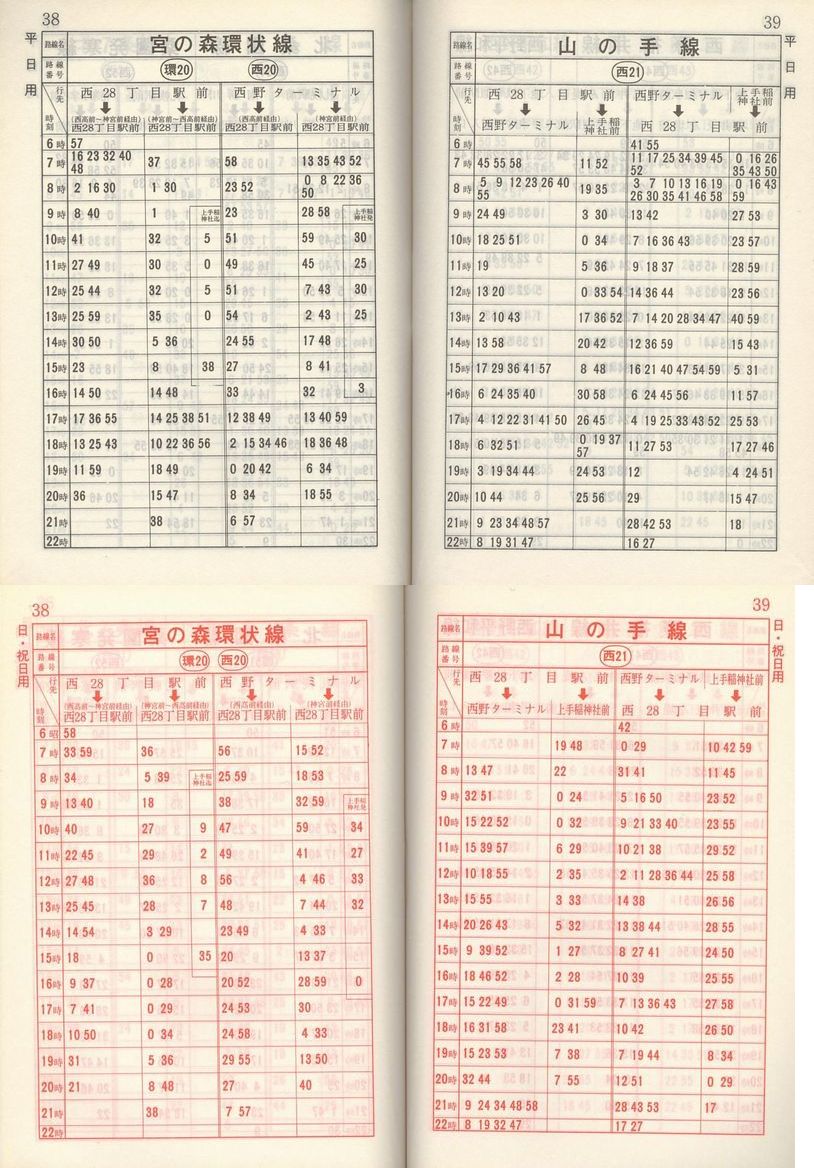 38
平日用
路線名 宮の森環状線
路線番号 環20 西20
行先 時刻 西28丁目駅前 西野ターミナル
(西高前〜神宮前経由) (神宮前〜西高前経由) (西高前経由) (神宮前経由)
西28丁目駅前 西28丁目駅前 西28丁目駅前 西28丁目駅前
6時 57
7時 16 23 32 40 37 58 13 35 43 52
48
8時 2 16 30 1 30 23 52 0 8 22 36
50
9時 8 40 1 上手稲神社迄 23 28 58 上手稲神社発
10時 41 32 5 51 59 30
11時 27 49 30 0 49 45 25
12時 25 44 32 5 51 7 43 30
13時 25 59 35 0 54 2 43 25
14時 30 50 5 36 24 55 17 48
15時 23 8 38 27 8 41
16時 14 50 14 48 33 32 3
17時 17 36 55 14 25 38 51 12 38 49 13 40 59
18時 13 25 43 10 22 36 56 2 15 34 46 18 36 48
19時 11 59 18 49 0 20 42 6 34
20時 36 15 47 8 34 18 55
21時 38 6 57
22時
39
平日用
路線名 山の手線
路線番号 西21
行先 時刻 西28丁目駅前 西野ターミナル 上手稲神社前
西野ターミナル 上手稲神社前 西28丁目駅前
6時 41 55
7時 45 55 58 11 52 11 17 25 34 39 45 0 16 26
52 35 43 50
8時 5 9 12 23 26 40 19 35 3 7 10 13 16 19 0 16 43
55 26 30 35 41 46 58 59
9時 24 49 3 30 13 42 27 53
10時 18 25 51 0 34 7 16 36 43 23 57
11時 19 5 36 9 18 37 28 59
12時 13 20 0 33 54 14 36 44 23 56
13時 2 10 43 17 36 52 7 14 20 28 34 47 40 59
14時 13 58 20 42 12 36 59 15 43
15時 17 29 36 41 57 8 48 16 21 40 47 54 59 5 31
16時 6 24 35 40 30 58 6 24 45 56 11 57
17時 4 12 22 31 41 50 26 45 4 19 25 33 43 52 25 53
18時 6 32 51 0 19 37 11 27 53 17 27 46
57
19時 3 19 34 44 24 53 12 4 24 51
20時 10 44 25 56 29 15 47
21時 9 23 34 48 57 28 42 53 18
22時 8 19 31 47 16 27
38
日・祝日用
路線名 宮の森環状線
路線番号 環20 西20
行先 時刻 西28丁目駅前 西野ターミナル
(西高前〜神宮前経由) (神宮前〜西高前経由) (西高前経由) (神宮前経由)
西28丁目駅前 西28丁目駅前 西28丁目駅前 西28丁目駅前
6時 58
7時 33 59 36 56 15 52
8時 34 5 39 上手稲神社迄 25 59 18 53
9時 13 40 18 38 32 59 上手稲神社発
10時 40 27 9 47 59 34
11時 22 45 29 2 49 41 27
12時 27 48 36 8 56 4 46 33
13時 25 45 28 7 48 7 44 32
14時 14 54 3 29 23 49 4 33
15時 18 0 35 20 13 37
16時 9 37 0 28 20 52 28 59 0
17時 7 41 0 29 24 53 30
18時 10 50 0 34 24 58 4 33
19時 31 5 36 29 55 13 50
20時 21 8 48 27 40
21時 38 7 57
22時
39
日・祝日用
路線名 山の手線
路線番号 西21
行先 時刻 西28丁目駅前 西野ターミナル 上手稲神社前
西野ターミナル 上手稲神社前 西28丁目駅前
6時 42
7時 19 48 0 29 10 42 59
8時 13 47 22 31 41 11 45
9時 32 51 0 24 5 16 50 23 52
10時 15 22 52 0 32 9 21 33 40 23 55
11時 15 39 57 6 29 10 21 38 29 52
12時 10 18 55 2 35 2 11 28 36 44 25 58
13時 15 55 3 33 14 38 26 56
14時 20 26 43 5 32 13 38 44 28 55
15時 9 39 52 1 27 8 27 41 24 50
16時 18 46 52 2 28 10 39 25 55
17時 15 22 49 0 31 59 7 13 36 43 27 58
18時 16 31 58 23 41 10 42 26 50
19時 15 23 53 7 38 7 19 44 8 34
20時 32 44 7 55 12 51 0 29
21時 9 24 34 48 58 28 43 53 17
22時 8 19 32 47 17 27